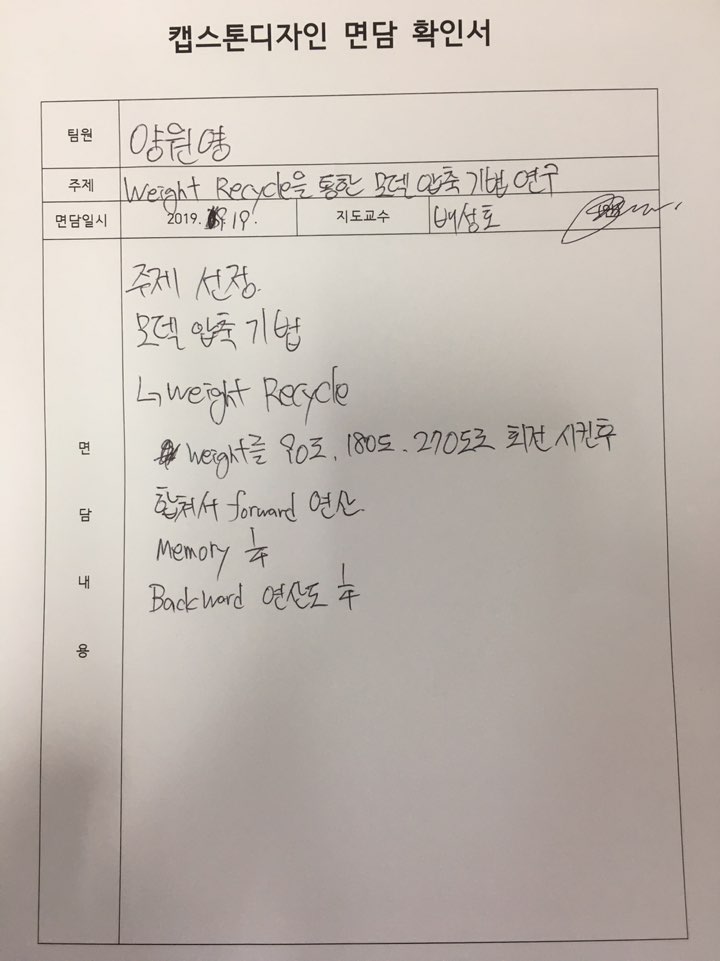 캡스톤디자인 면담 확인서
팀원 양원영
주제 Weight Recycle을 통한 모델 압축 기법 연구
면담일시 2019. 19. 지도교수 배성호
주제 선정.
모델 압축 기법
↳ Weight Recycle
Weight를 90도, 180도, 270도로 회전 시킨후
합쳐서 forward 연산.
Memory 1/4
Backward 연산도 1/4
면담내용